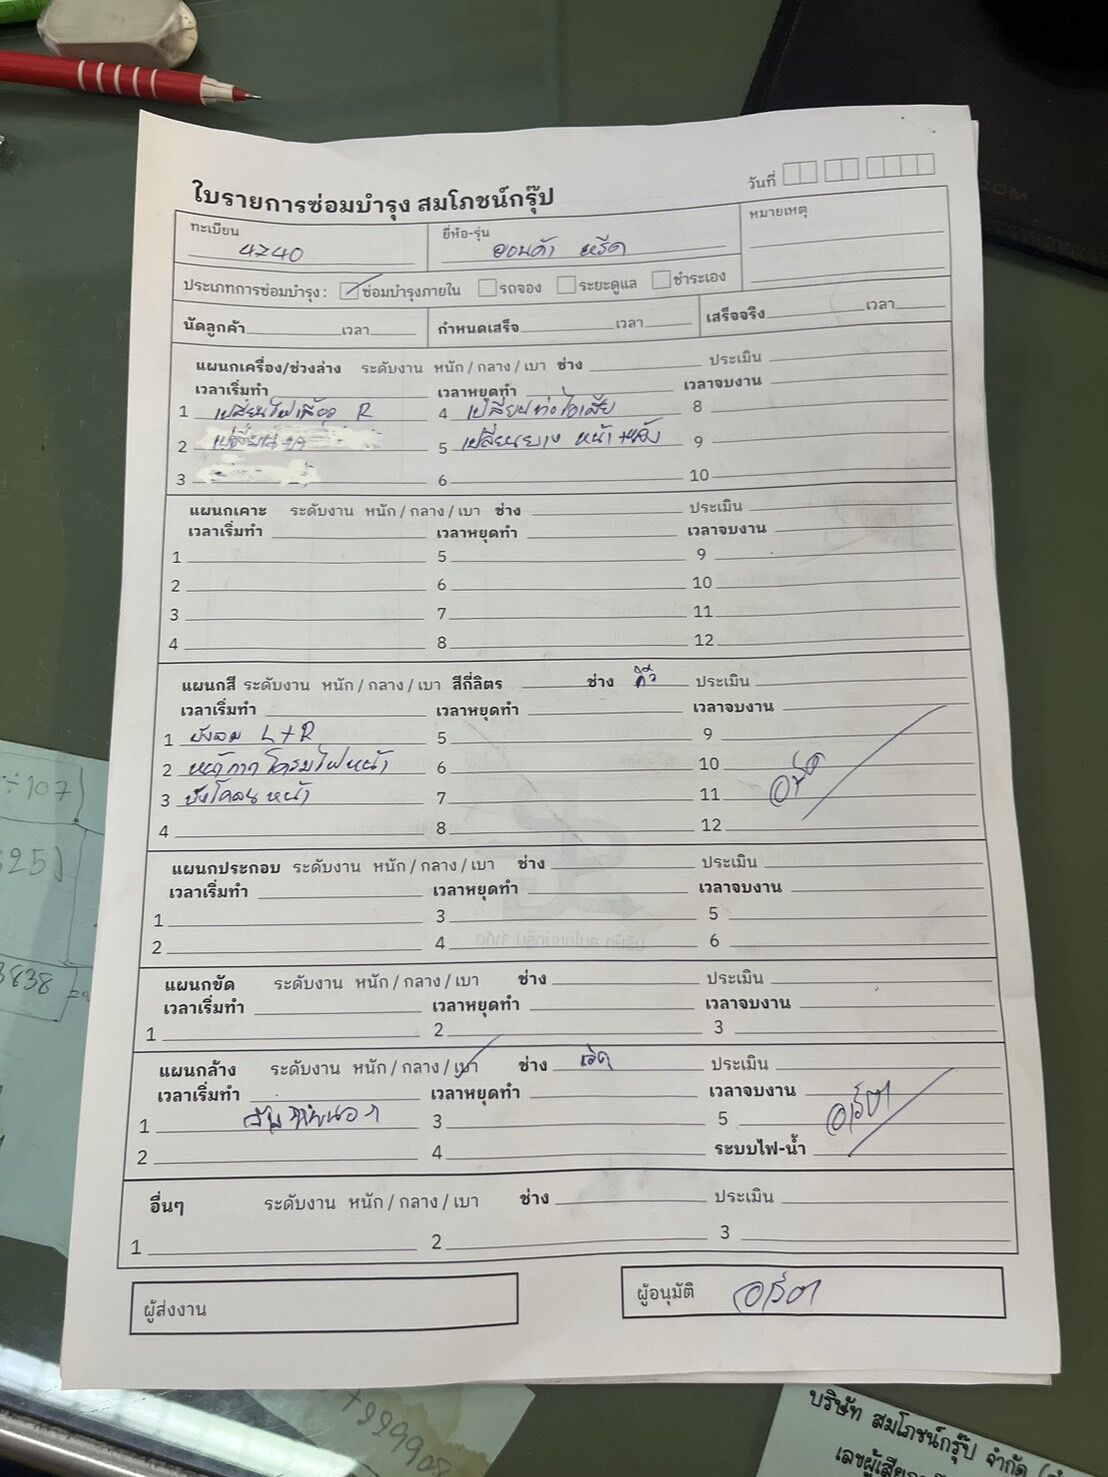 ใบรายการซ่อมบำรุง สมโภชน์กรุ๊ป
วันที่
ทะเบียน 4740
ยี่ห้อ-รุ่น ฮอนด้า ฟรีด
หมายเหตุ
ประเภทการซ่อมบำรุง : ซ่อมบำรุงภายใน รถจอง ระยะดูแล ชำระเอง
นัดลูกค้า เวลา กำหนดเสร็จ เวลา เสร็จจริง เวลา
แผนกเครื่อง/ช่วงล่าง ระดับงาน หนัก / กลาง / เบา ช่าง ประเมิน
เวลาเริ่มทำ เวลาหยุดทำ เวลาจบงาน
1 เปลี่ยนไฟเลี้ยว R 4 เปลี่ยนท่อไอเสีย 8
2 5 เปลี่ยนยาง หน้า+หลัง 9
3 6 10
แผนกเคาะ ระดับงาน หนัก / กลาง / เบา ช่าง ประเมิน
เวลาเริ่มทำ เวลาหยุดทำ เวลาจบงาน
1 5 9
2 6 10
3 7 11
4 8 12
แผนกสี ระดับงาน หนัก / กลาง / เบา สีกี่ลิตร ช่าง คิว ประเมิน
เวลาเริ่มทำ เวลาหยุดทำ เวลาจบงาน
1 บังลม L+R 5 9
2 หน้ากาก โครมไฟหน้า 6 10
3 บังโคลนหน้า 7 11
4 8 12
แผนกประกอบ ระดับงาน หนัก / กลาง / เบา ช่าง ประเมิน
เวลาเริ่มทำ เวลาหยุดทำ เวลาจบงาน
1 3 5
2 4 6
แผนกขัด ระดับงาน หนัก / กลาง / เบา ช่าง ประเมิน
เวลาเริ่มทำ เวลาหยุดทำ เวลาจบงาน
1 2 3
แผนกล้าง ระดับงาน หนัก / กลาง / เบา ช่าง ประเมิน
เวลาเริ่มทำ เวลาหยุดทำ เวลาจบงาน
1 3 5
2 4 ระบบไฟ-น้ำ
อื่นๆ ระดับงาน หนัก / กลาง / เบา ช่าง ประเมิน
1 2 3
ผู้ส่งงาน
ผู้อนุมัติ
บริษัท สมโภชน์กรุ๊ป จำกัด